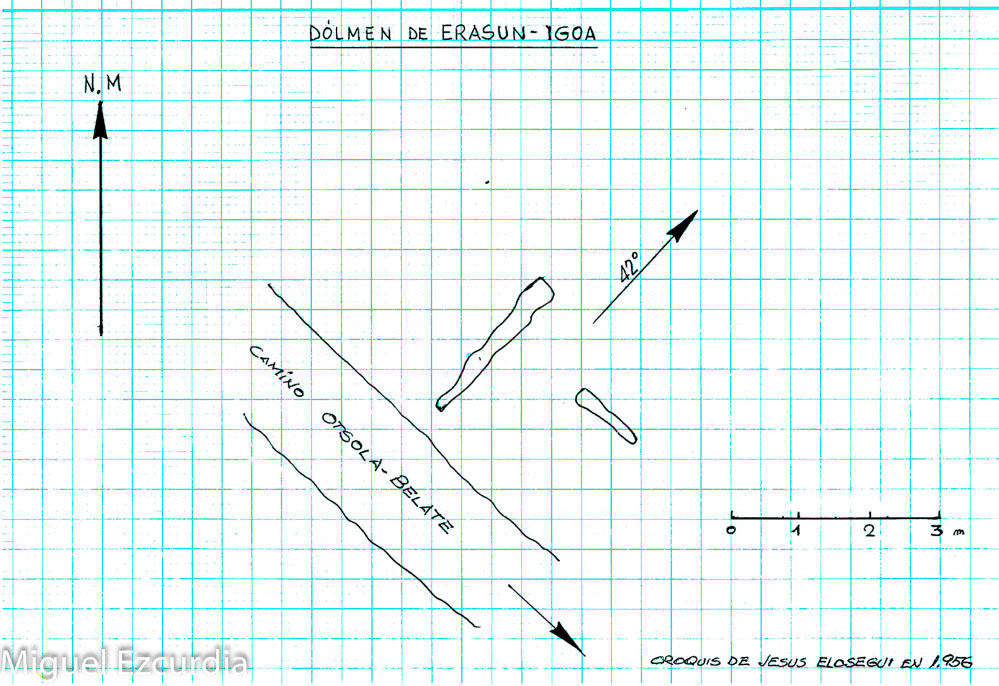 DÓLMEN DE ERASUN-IGOA
N.M
42º
CAMÍNO OTSOLA-BELATE
0 1 2 3 m
CROQUIS DE JESUS ELOSEGUI EN 1.956
Miguel Ezcurdia